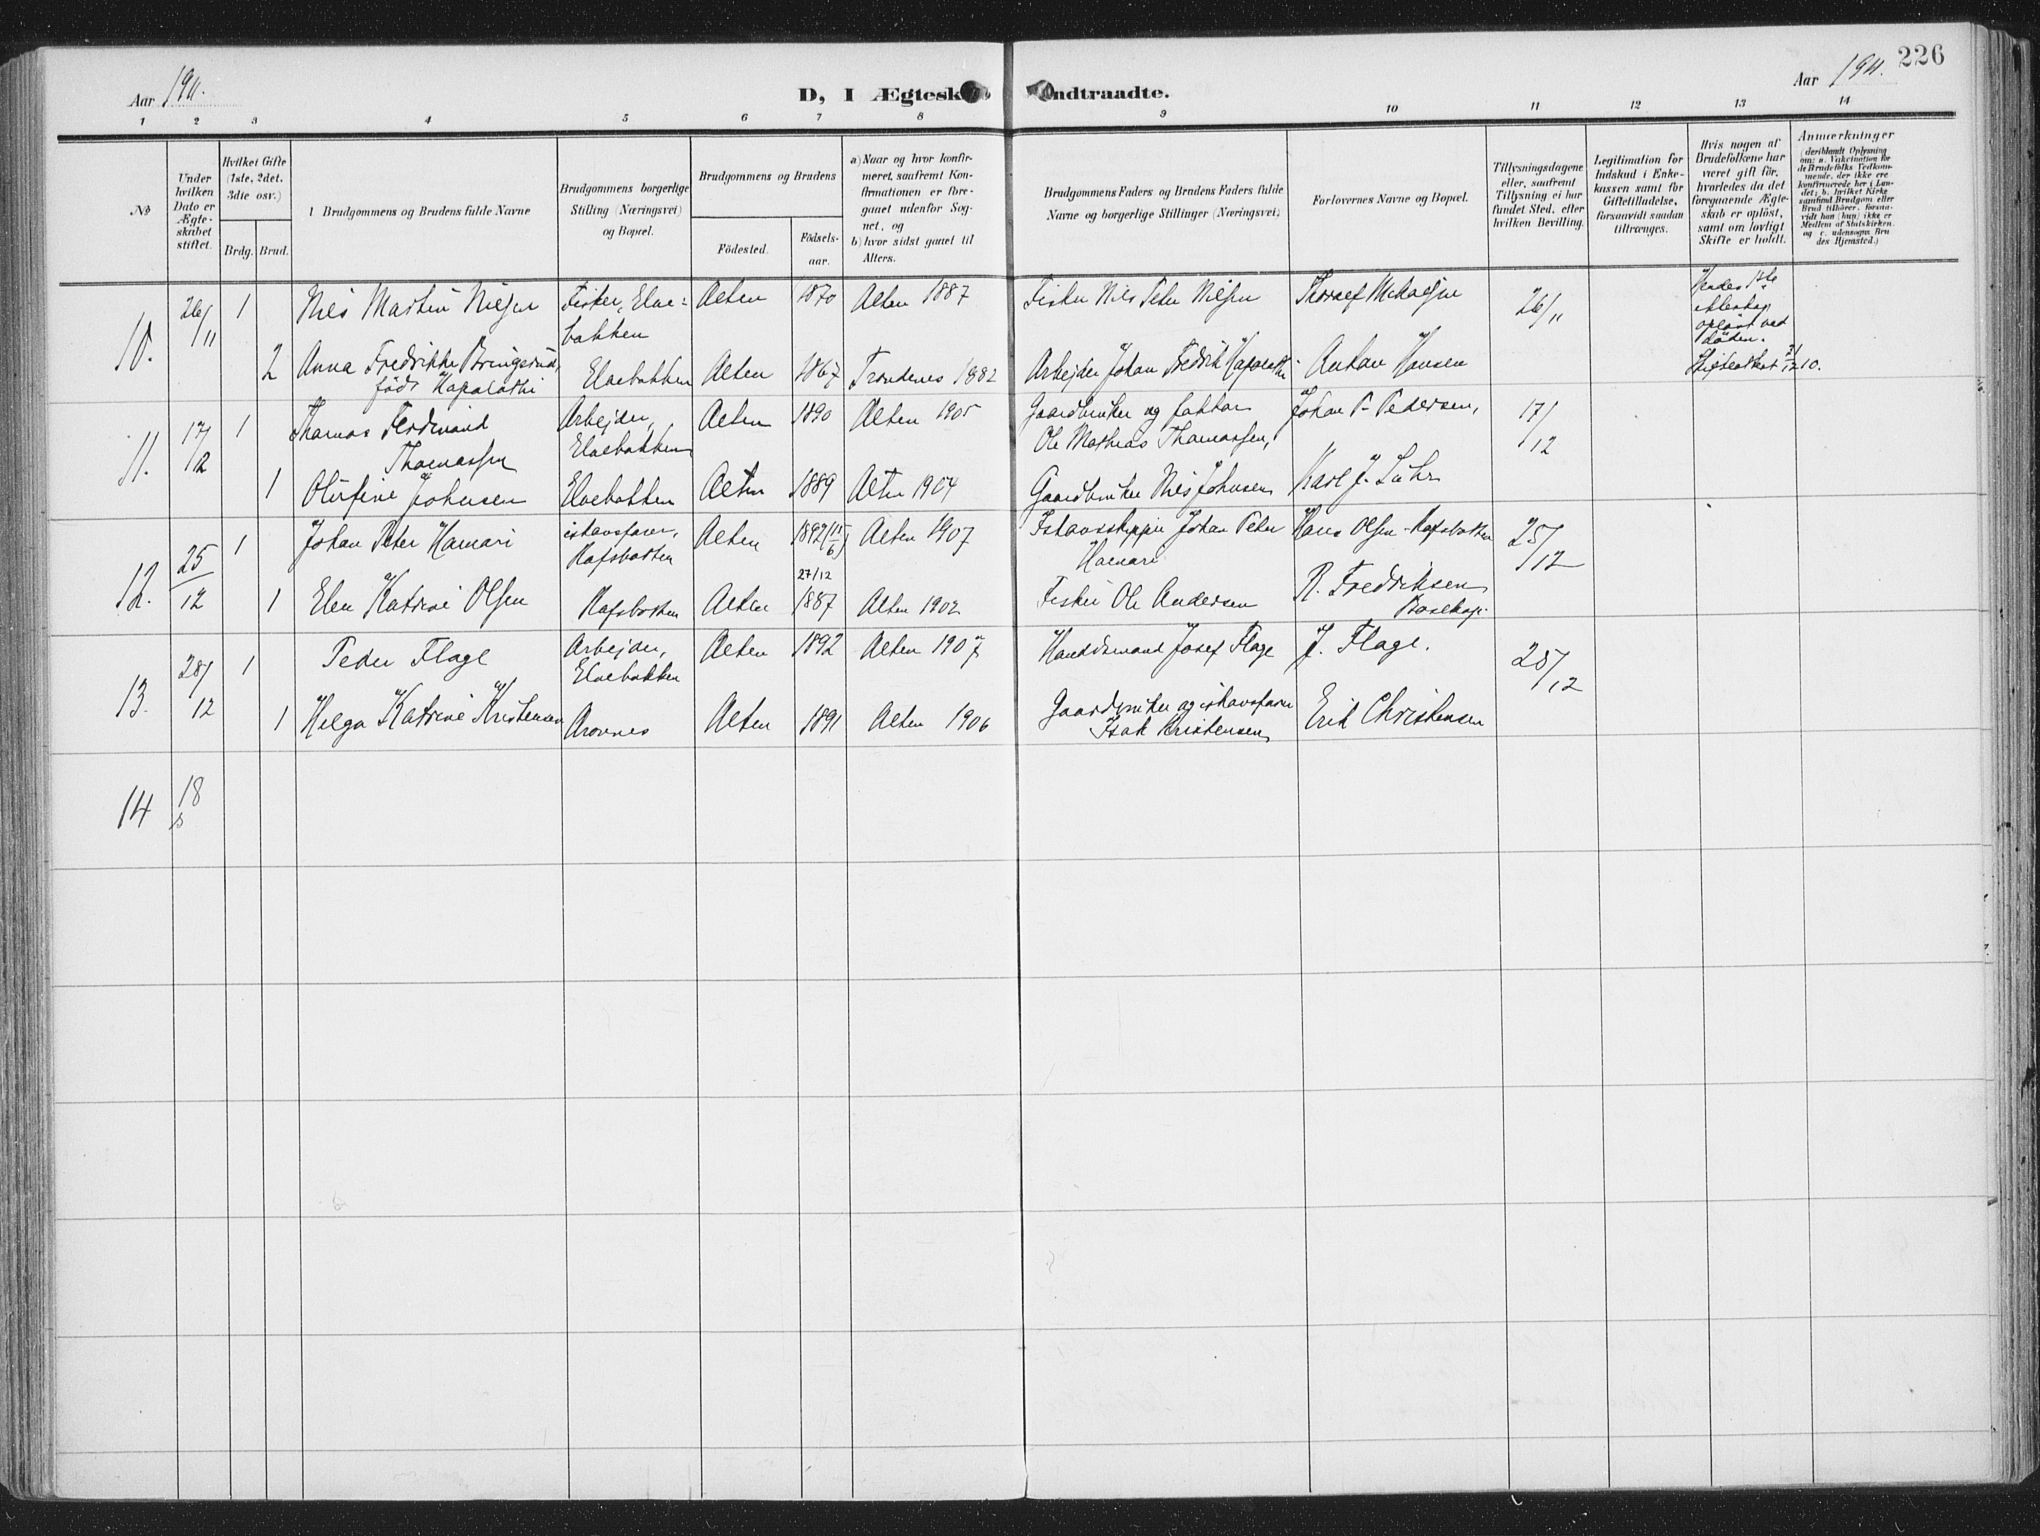 226
Aar 1911.
D, I Ægtesk
ndtraadte.
Aar 1911.
1 2 3 4 5 6 7 8 9 10 11 12 13 14
No
Under
hvilken
Dato er
Ægte-
skabet
stiftet.
Hvilket Gifte
(1ste, 2det,
3die osv.)
Brdg.
Brud.
Brudgommens og Brudens fulde Navne
Brudgommens borgerlige
Stilling (Næringsvei)
og Bopæl.
Brudgommens og Brudens
Fødested.
Fødsels-
aar.
a) Naar og hvor konfir-
meret, saafremt Kon-
firmationen er fore-
gaaet udenfor Sog-
net, og
b) hvor sidst gaaet til
Alters.
Brudgommens Faders og Brudens Faders fulde
Navne og borgerlige Stillinger (Næringsvei)
Forlovernes Navne og Bopæl.
Tillysningsdagene
eller, saafremt
Tillysning ei har
fundet Sted, efter
hvilken Bevilling.
Legitimation for
Indskud i Enke-
kassen samt for
Giftetilladelse,
forsaavidt saadan
tiltrænges.
Hvis nogen af
Brudefolkene har
været gift før,
hvorledes da det
foregaaende Ægte-
skab er opløst,
samt om lovligt
Skifte er holdt.
Anmærkninger
(deriblandt Oplysning
om: a. Vakcination for
de Brudefolks Vedkom-
mende, der ikke ere
konfirmerede her i Lan-
det; b. hvilket Kirke-
samfund Brudgom eller
Brud tilhører, forsaa-
vidt han (hun) ikke er
Medlem af Statskirken,
og c. udensogns Bru-
des Hjemsted.)
10. 26/11 1 Nils Martin Nilsen Fisker, Elve-
bakken Alten 1870 Alten 1887 Fisker Nils Peter Nilsen Thoralf Mikalsen 26/11 Hendes 1ste
Ækteskap
opløst ved
Døden.
2 Anna Fredrikke Bringsrud,
född Kapalathi Elvebakken Alten 1867 Trondenes 1882 Arbejder Johan Fredrik Anton Hansen Skifteattest 21/12 10.
11. 17/12 1 Thomas Ferdinand
Thomassen Arbejder,
Elvebakken Alten 1890 Alten 1905 Gaardbruker og faktor
Ole Mathias Thomassen, Johan P. Pedersen, 17/12
1 Olufine Johnsen Elvebakken Alten 1889 Alten 1904 Gaardbruker Nils Johnsen Karl J. Luhr
12. 25/12 1 Johan Peter Hamari ishavsfarer,
Rafsbotten Alten 1892 (15/6) Alten 1907 Ishavsskipper Johan Peter
Hamari Hans Olsen Rafsbotten 25/12
1 Elen Katrine Olsen Rafsbotten Alten 27/12
1887 Alten 1902 Fisker Ole Andersen R. Fredriksen
Bosekop.
13. 28/12 1 Peder Flage Arbejder,
Elvebakken Alten 1892 Alten 1907 Handelsmand Josef Flage J. Flage. 28/12
1 Helga Katrine Kristensen Aronnes Alten 1891 Alten 1906 Gaardbruker og ishavsfarer
Isak Kristensen Erik Christensen
14 18